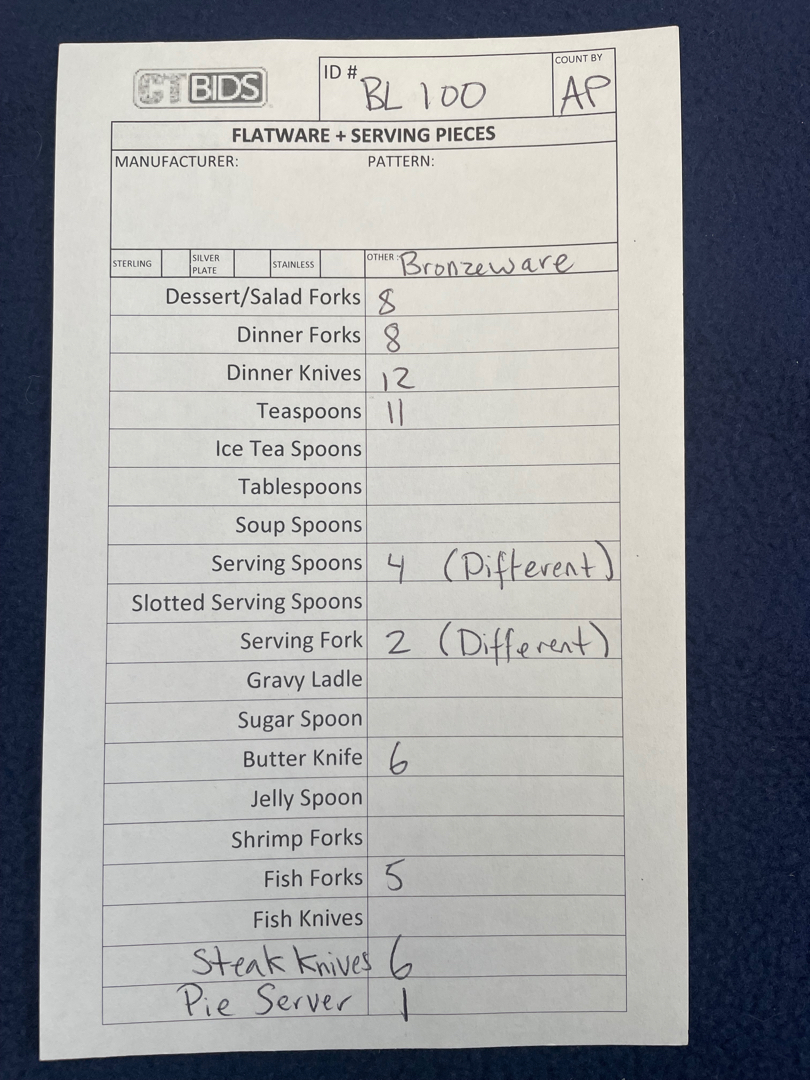 CTBIDS
ID # BL 100
COUNT BY AP
FLATWARE + SERVING PIECES
MANUFACTURER: PATTERN:
STERLING SILVER PLATE STAINLESS OTHER: Bronzeware
Dessert/Salad Forks 8
Dinner Forks 8
Dinner Knives 12
Teaspoons 11
Ice Tea Spoons
Tablespoons
Soup Spoons
Serving Spoons 4 (Different)
Slotted Serving Spoons
Serving Fork 2 (Different)
Gravy Ladle
Sugar Spoon
Butter Knife 6
Jelly Spoon
Shrimp Forks
Fish Forks 5
Fish Knives
Steak Knives 6
Pie Server 1